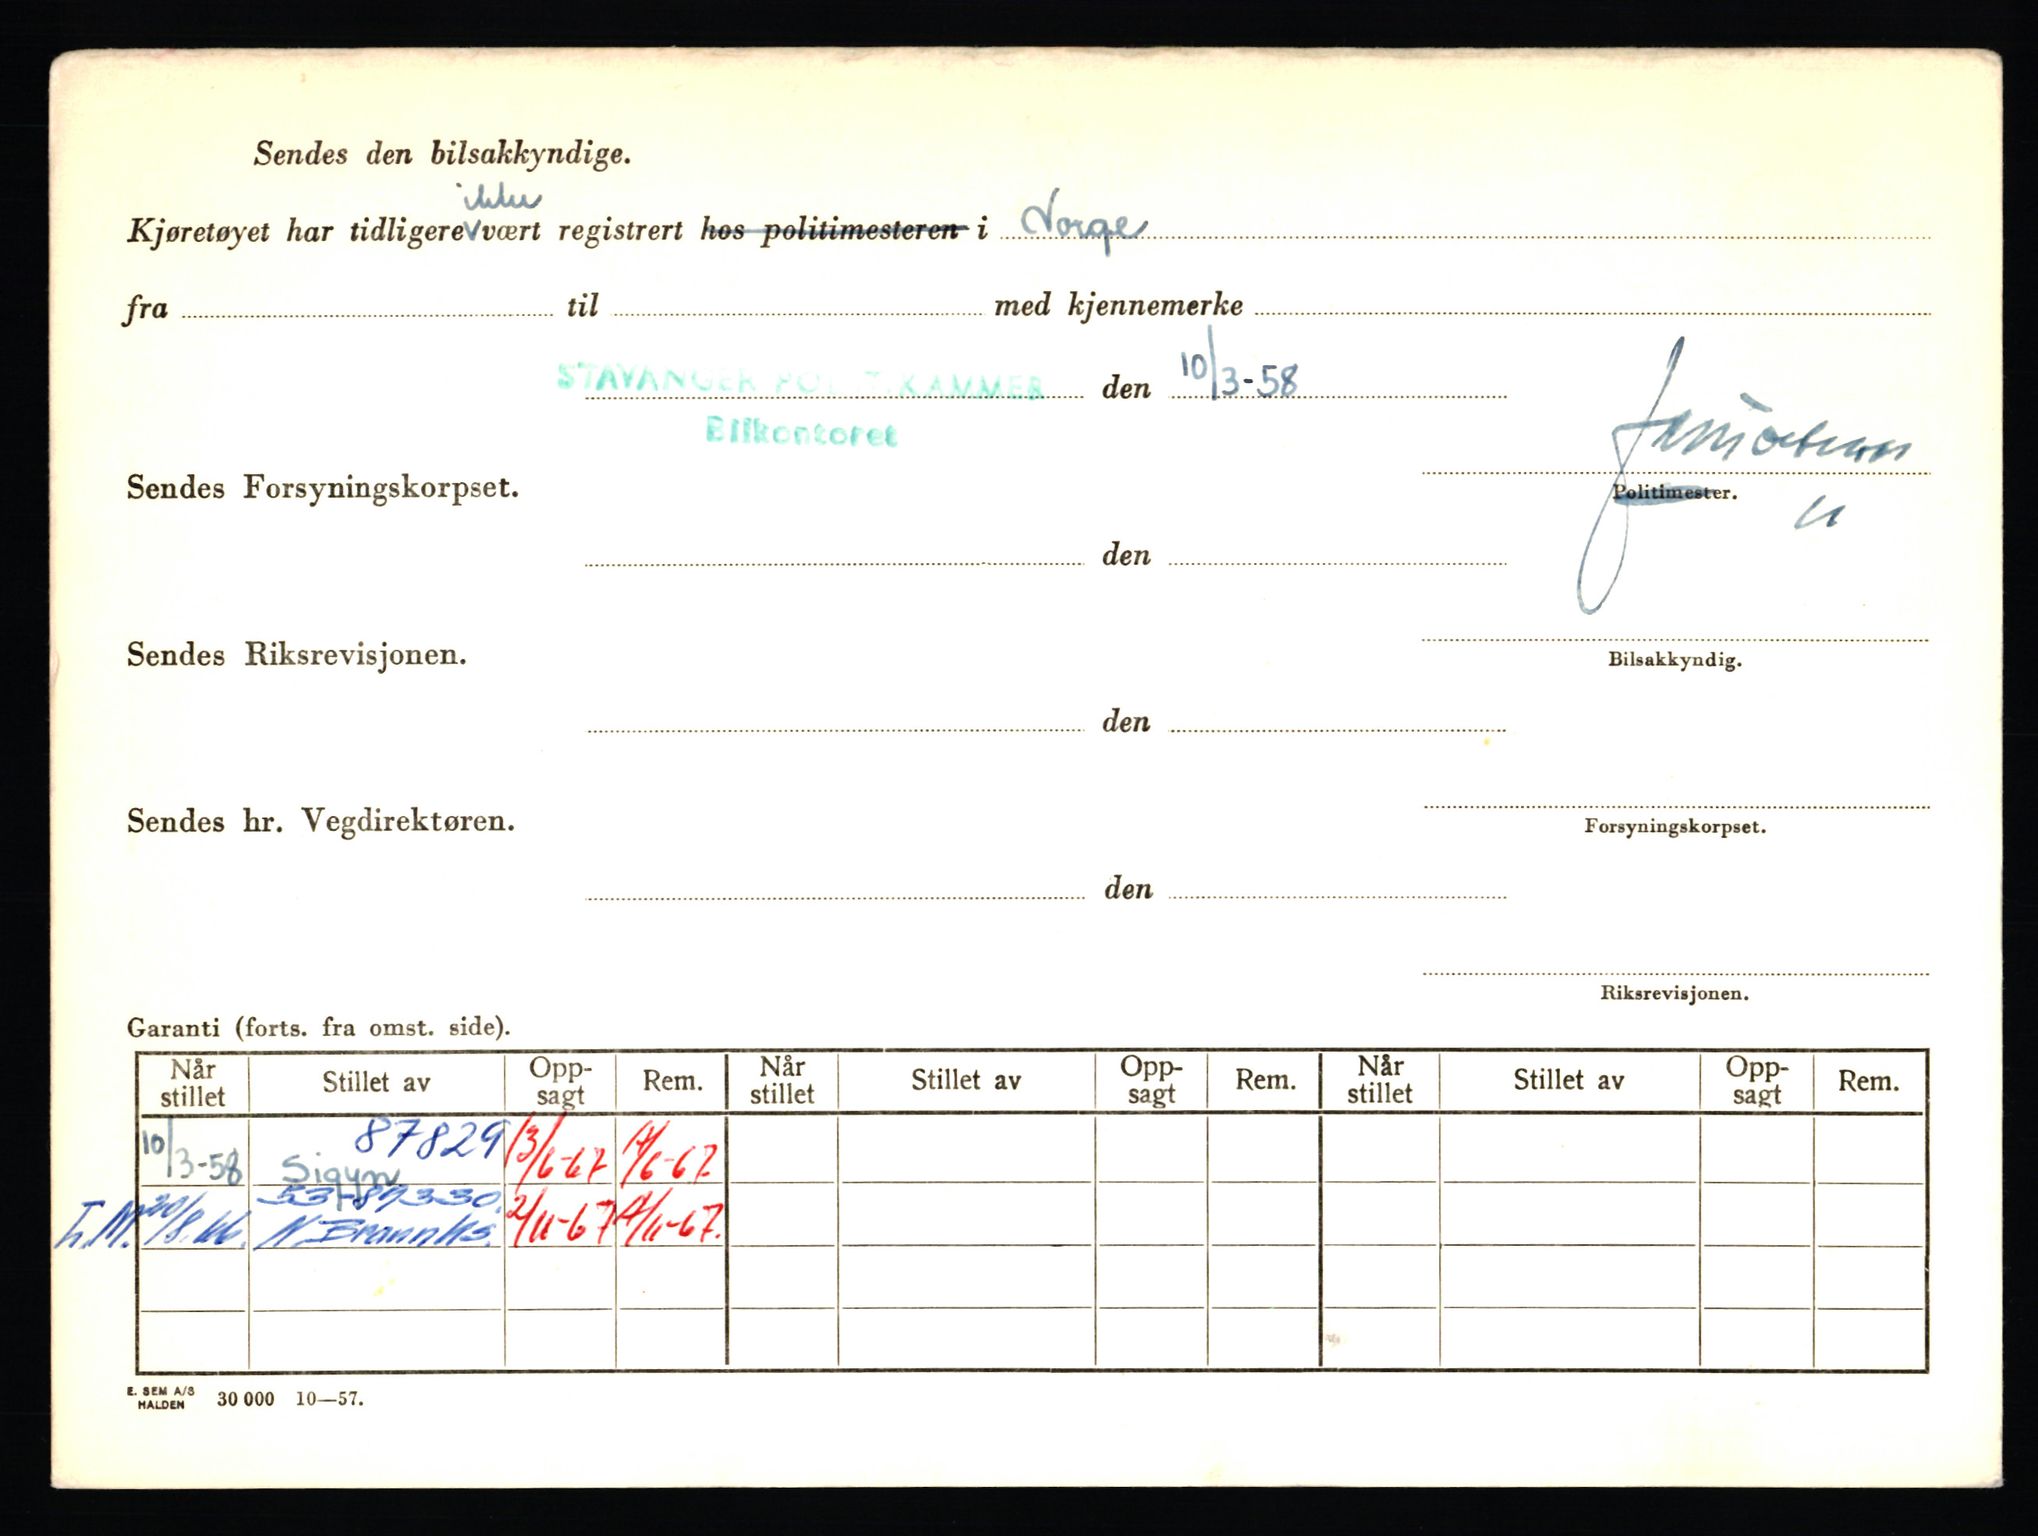 Sendes den bilsakkyndige.
ikke
Kjøretøyet har tidligere V vært registrert hos politimesteren i Norge
fra til med kjennemerke
STAVANGER POLITIKAMMER den 10/3-58
Bilkontoret
Sendes Forsyningskorpset.
Politimester.
den
Sendes Riksrevisjonen.
Bilsakkyndig.
den
Sendes hr. Vegdirektøren.
Forsyningskorpset.
den
Riksrevisjonen.
Garanti (forts. fra omst. side).
Når stillet Stillet av Opp-sagt Rem. Når stillet Stillet av Opp-sagt Rem. Når stillet Stillet av Opp-sagt Rem.
10/3-58 87829 Sigyn 13/6-67 17/6-67
20/8.66. 53-89330. N Brannks. 2/11-67 17/11-67.
E. SEM A/S
HALDEN 30 000 10—57.